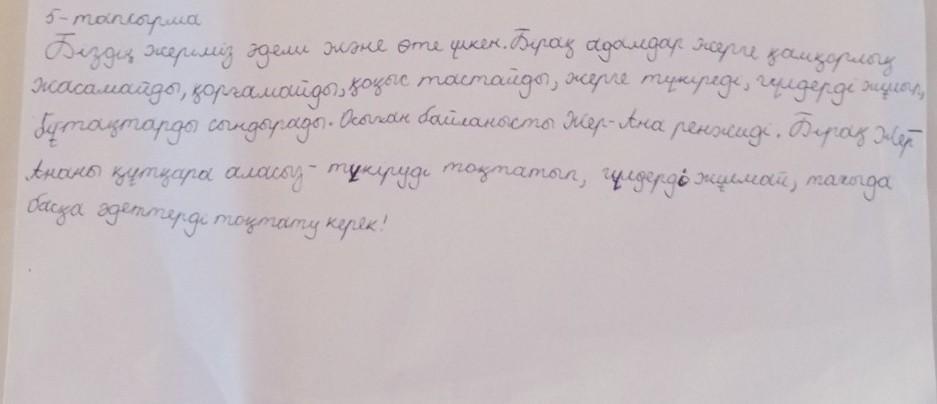 5-тапсырма
Біздің жеріміз әдемі және өте үлкен. Бірақ адамдар жерге қамқорлық
жасамайды, қорғамайды, қоқыс тастайды, жерге түкіреді, гүлдерді жұлып,
бұтақтарды сындырады. Осыған байланысты Жер-Ана ренжиді. Бірақ Жер-
Ананы құтқара аласыз - түкіруді тоқтатып, гүлдерді жұлмай, тағыда
басқа әдеттерді тоқтату керек!